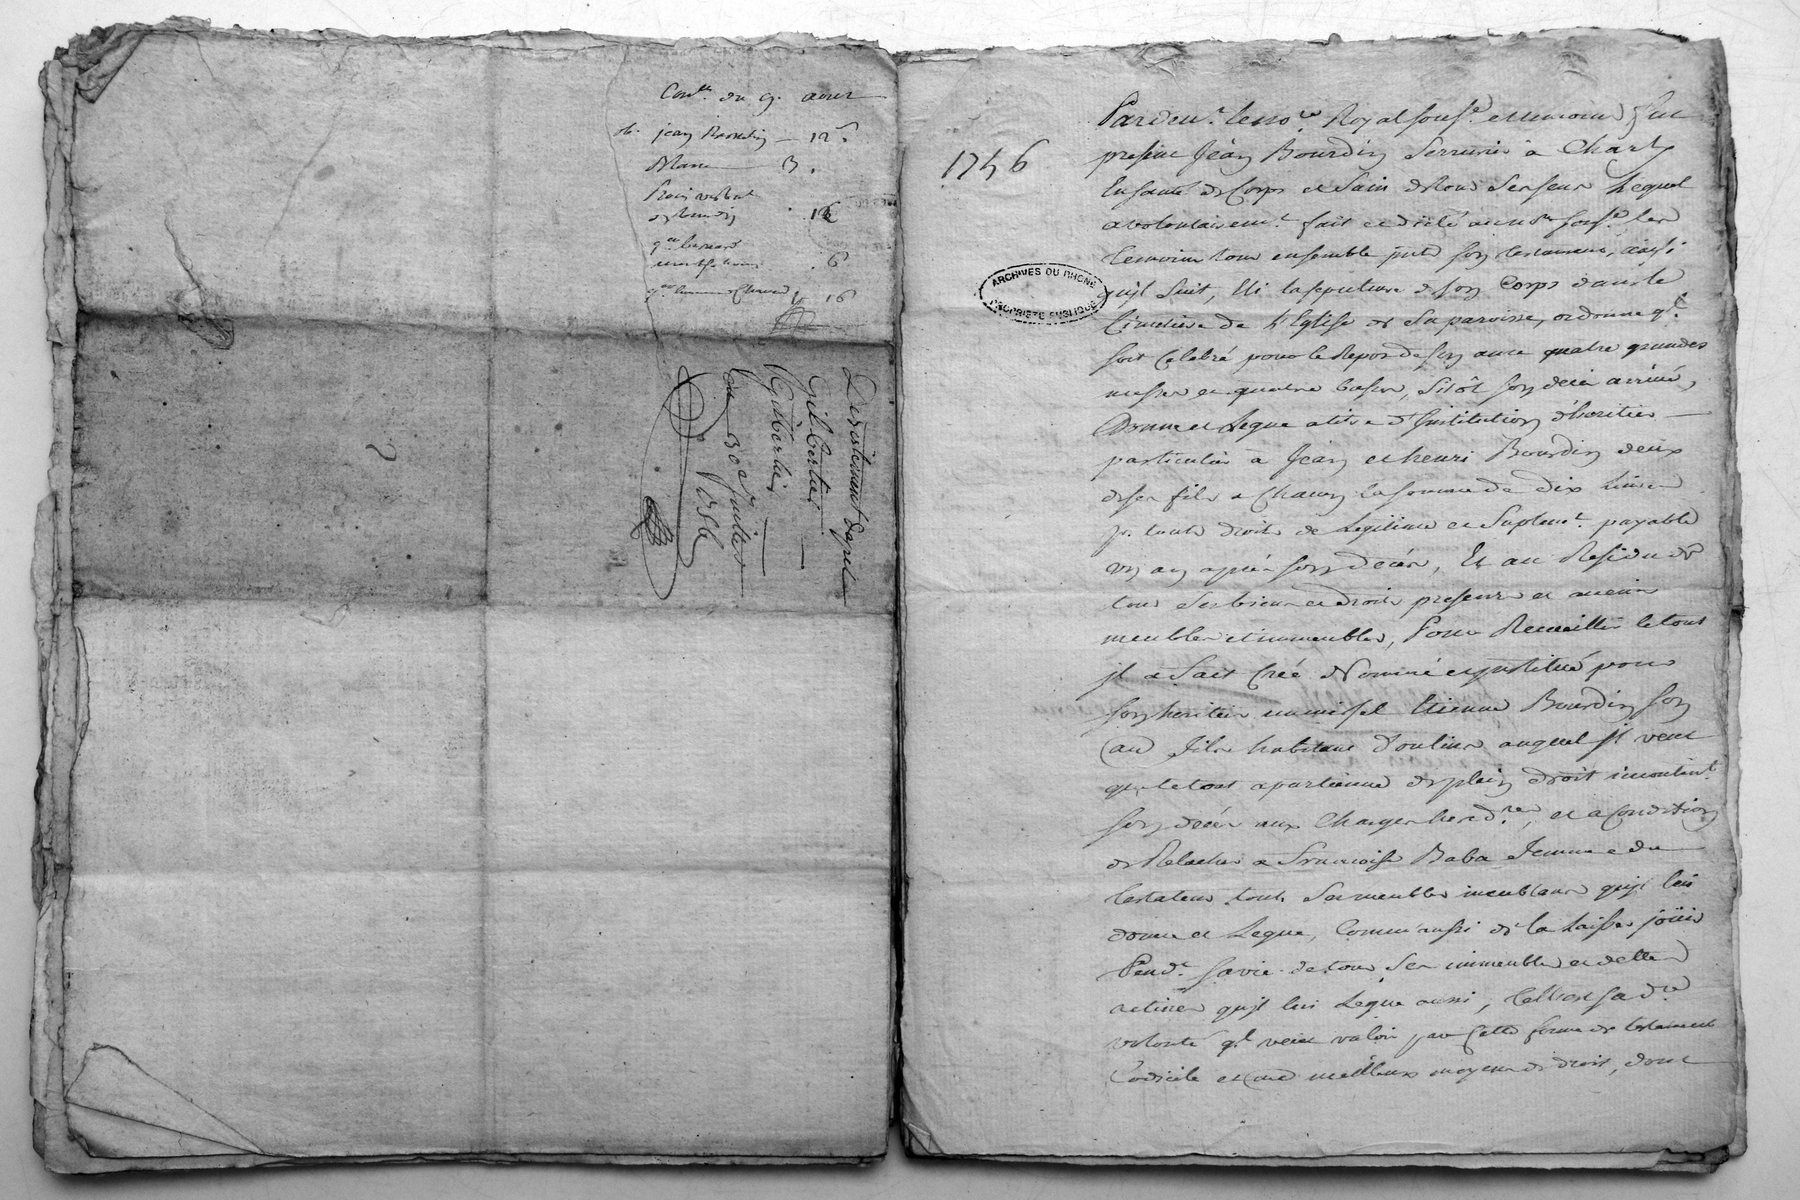 du 9. aoust
jean Bourdin — 12
3.
16
6
16
Desistement
Gilbertier
Gilbertier
du 30e Juillet
1746
ARCHIVES DU RHONE
PROPRIETE PUBLIQUE
Pardevt. le nore. Royal sousé. et temoins fut
present Jean Bourdin a Charly
En santé de Corps et Sain de tous ses sens Lequel
a volontairemt. fait et dicté au nore sousé. les
temoins tous ensemble son testament, ainsi
qu'jl suit, la sepulture de son Corps dans le
Cimetiere de l'Eglise de Sa paroisse, ordonne qe.
soit Celebré pour le Repos de son ame quatre grandes
messes et quatre basses, sitôt son deces arrivé,
Donne et Legue a titre d'Institution d'heritier
particulier a Jean et henri Bourdin deux
de ses fils a Chacun la somme de dix Livres
pr. tous droits de Legitime et Suplemt. payable
un an après son deces, Et au Residu de
tous ses biens et droits presents et avenir
meubles et immeubles, Pour Recueillir le tout
jl a fait Créé Nommé et jnstitué pour
son heritier universel Etienne Bourdin son
fils habitant d'oulins auquel jl veut
que le tout apartienne de plein droit incontint.
son deces aux Charges heredres, et a Condition
de Relacher a Francoise Baba femme du
testateur tous ses meubles meublans qu'jl lui
donne et Legue, Comm'aussi de la Laisser joüir
Pendt. sa vie de tous ses immeubles et dettes
actives qu'jl lui Legue aussi, telle est sa dre
volonté ql. veut valoir par Cette forme de testament
Codicile et meilleurs moyens de droit, dont